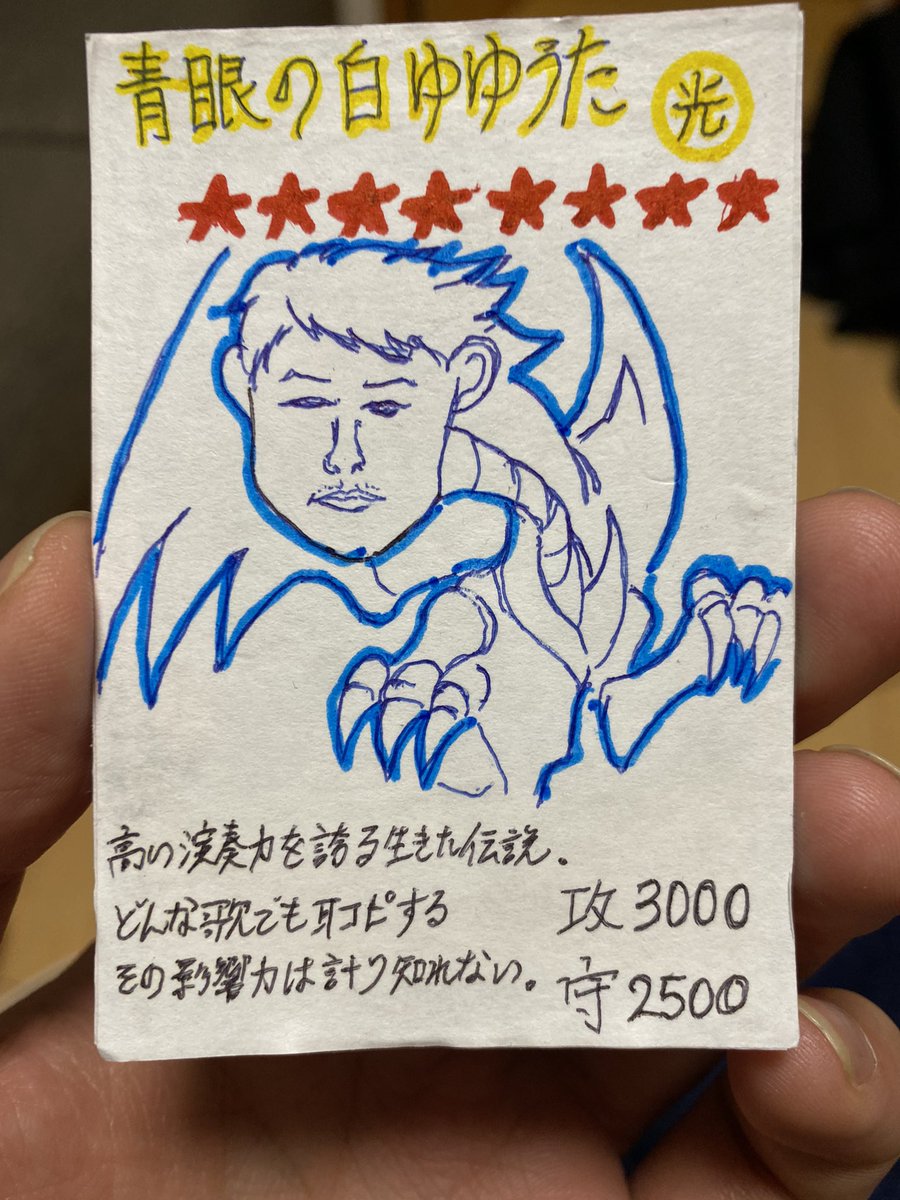 青眼の白ゆゆうた 光
★★★★★★★★
高い演奏力を誇る生きた伝説。
どんな歌でも耳コピする
その影響力は計り知れない。
攻3000
守2500